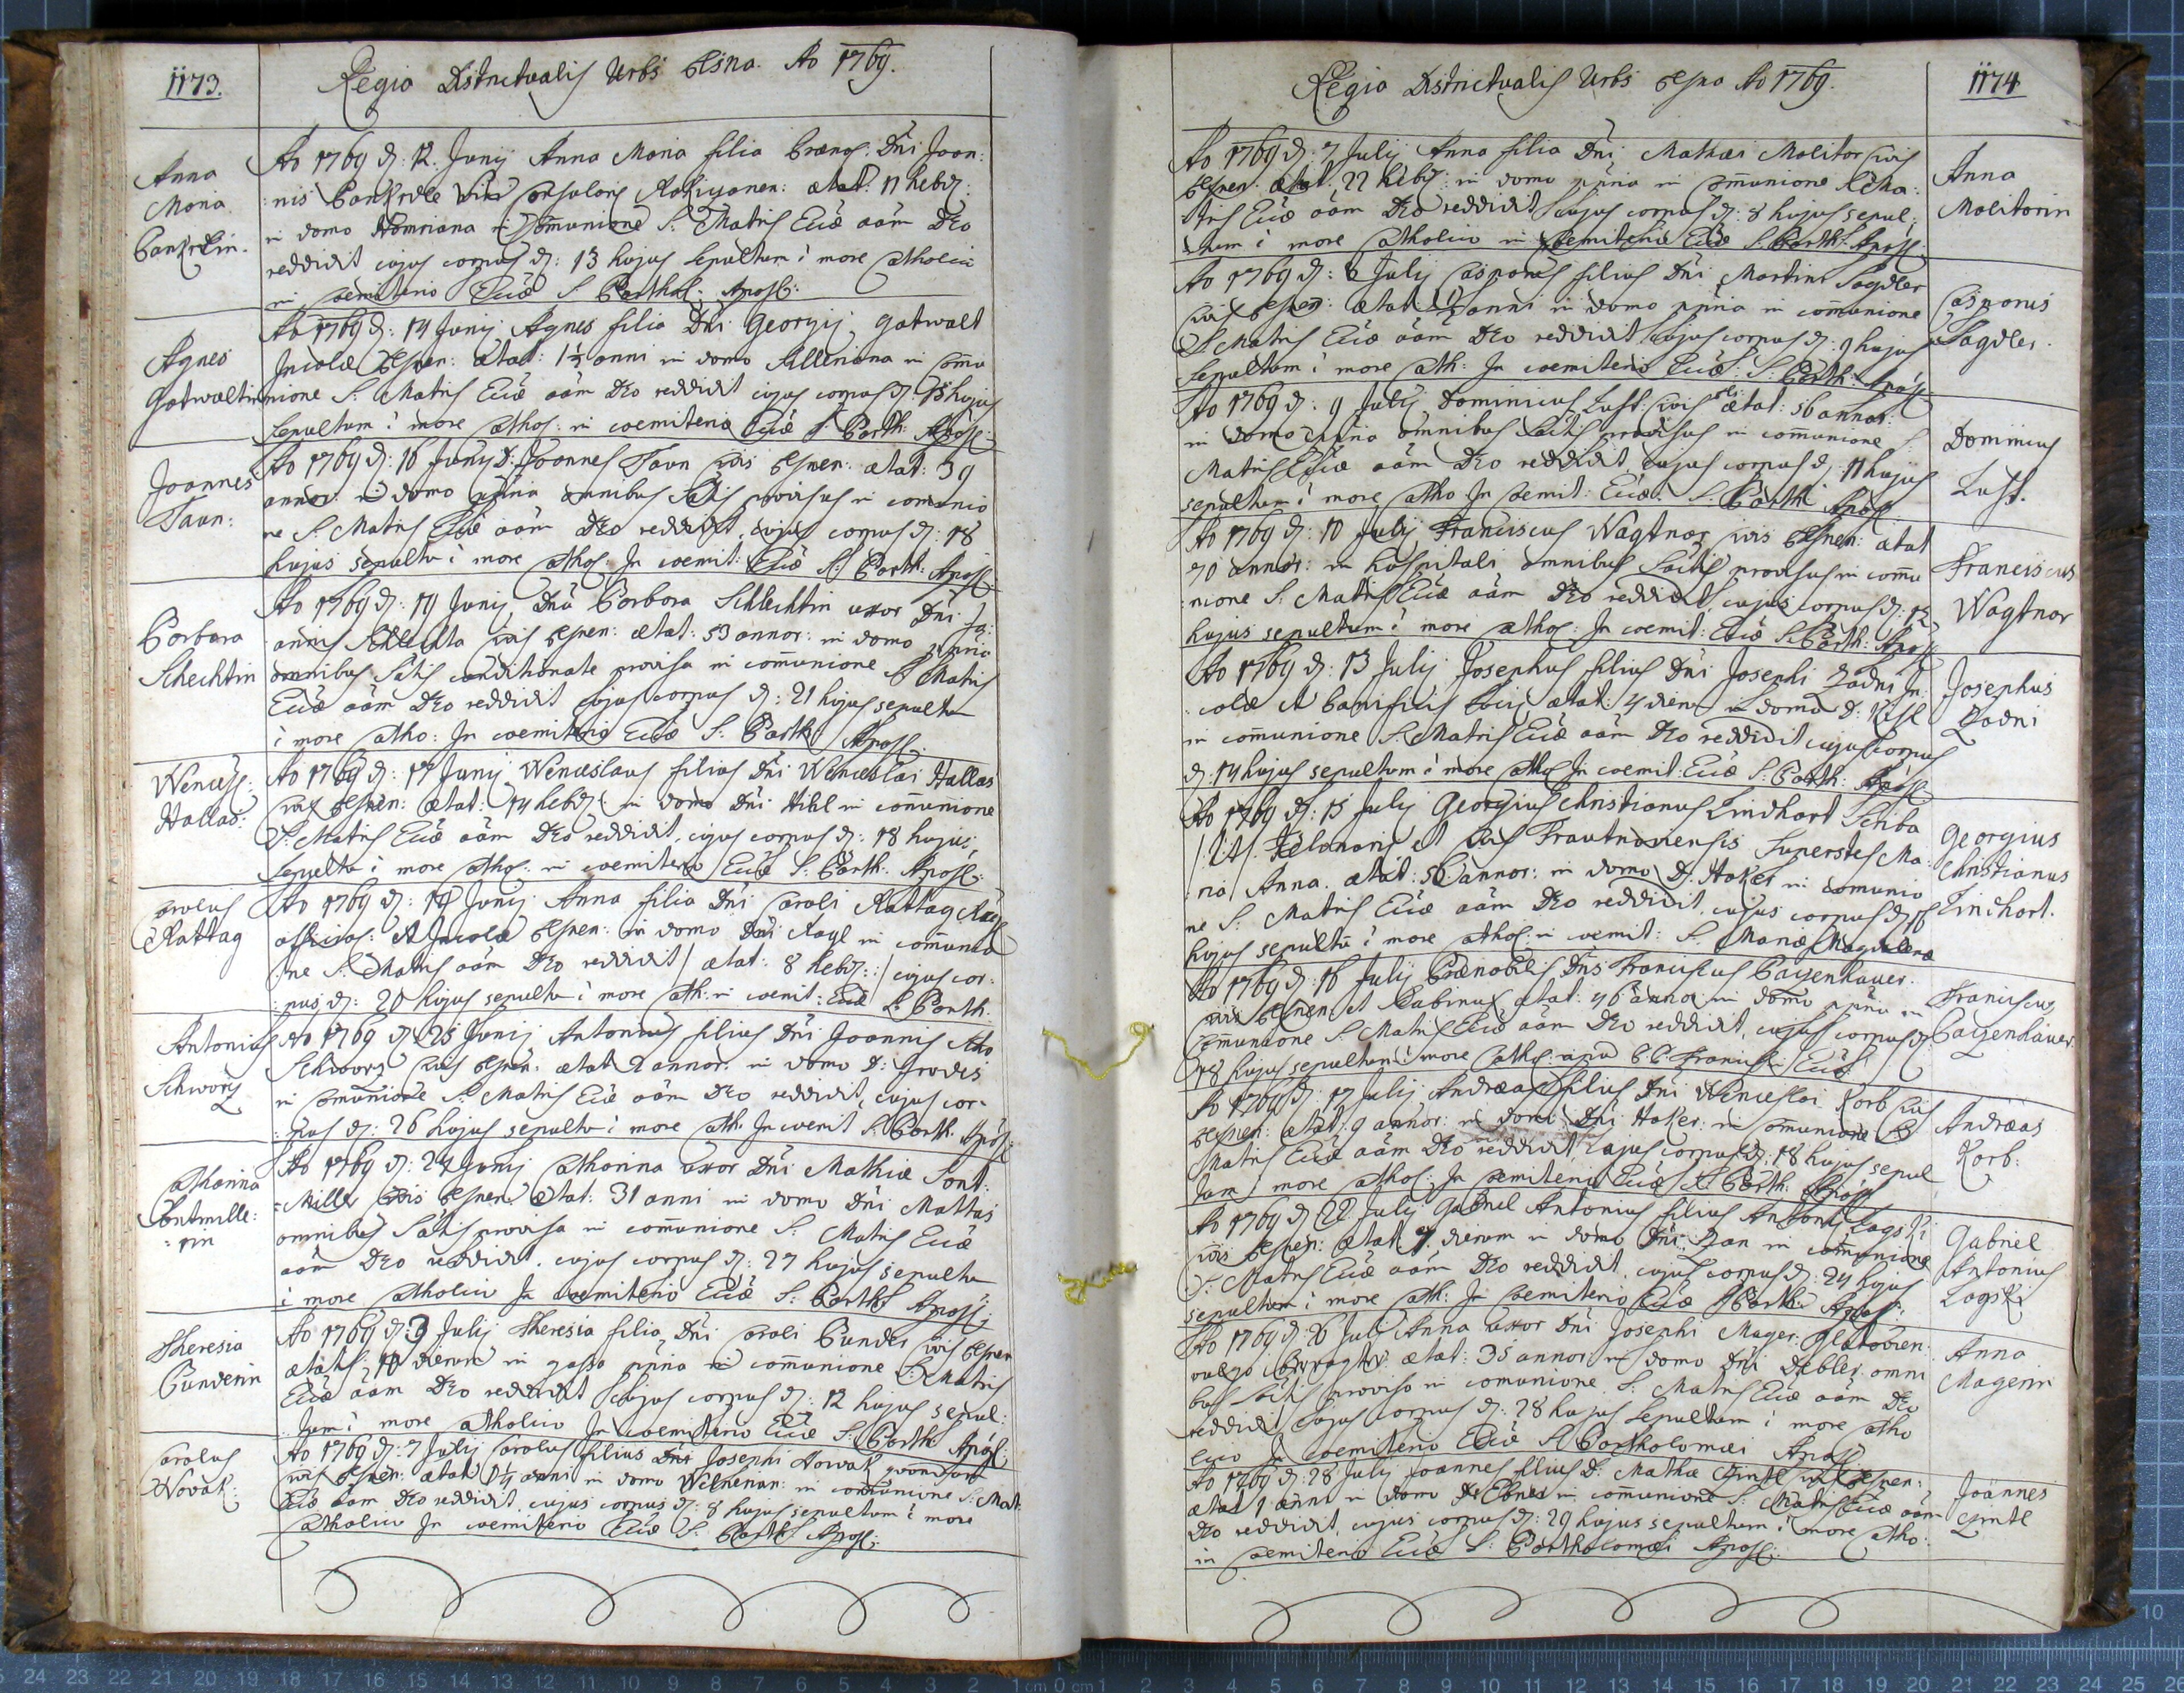 1173.
Regia Districtualis Urbs Pilsna. Ao 1769.
Anna
Maria
Ao 1769 d: 12. Junij Anna Maria filia Dni Joan:
:nis ætat: 11 hebd:
in domo in Communione S: Matris Ecciæ aãm Deo
reddidit cujus corpus d: 13 hujus sepultum ÷ more Catholico
in Coemiterio Ecciæ S. Barthol: Apost:
Agnes
Gotwaltin
Ao 1769 d: 14 Junij Agnes filia Dni Georgij Gotwalt
Incolæ Pilsnen: ætat: 1½ anni in domo in Commu
nione S. Matris Ecciæ aãm Deo reddidit cujus corpus d: 15 hujus
sepultum ÷ more Cathol: in coemiterio Ecciæ S. Barth: Apost:
Joannes
Taun:
Ao 1769 d: 16 Junij D: Joannes Taun Civis Pilsnen: ætat: 39
annor: in domo ppria omnibus Sacris provisus in communio
ne S. Matris Ecciæ aãm Deo reddidit, cujus corpus d: 18
hujus sepultu ÷ more Cathol. In coemit: Ecciæ S: Barth: Apost:
Barbara
Schechtin
Ao 1769 d: 19 Junij Dna Barbara Schlechtin uxor Dni Jo:
annis Schlechta Civis Pilsnen: ætat: 53 annor: in domo ppria
omnibus Sacris conditionate provisa in communione S Matris
Ecciæ aãm Deo reddidit cujus corpus d: 21 hujus sepultu
÷ more Catho: In coemiterio Ecciæ S: Barth: Apost:
Wencesl:
Hallas:
Ao 1769 d: 17 Junij Wenceslaus filius Dni Wenceslai Hallas
Civis Pilsnen: ætat: 14 hebd: in domo Dni Hihl in communione
S. Matris Ecciæ aãm Deo reddidit, cujus corpus d: 18 hujus,
sepultu ÷ more Cathol: in coemiterio Ecciæ S: Barth: Apost:
Carolus
Rattag
Ao 1769 d: 19 Junij Anna filia Dni Caroli Rattag
et Incolæ Pilsnen: in domo Dni in communio
:ne S: Matris aãm Deo reddidit / ætat: 8 hebd: / cujus cor:
:pus d: 20 hujus sepultu ÷ more Cath: in coemit: Ecciæ S. Barth:
Antonius
Schwarz
Ao 1769 d: 25 Junij Antonius filius Dni Joannis
Schwarz Civis Pilsnen: ætat 2 annor: in domo D: Grodis
in communione S: Matris Ecciæ aãm Deo reddidit, cujus cor-
:pus d: 26 hujus sepultu ÷ more Cath: In coemit S. Barth: Apost:
Catharina
Sontmille:
:rin
Ao 1769 d: 24 Junij Catharina uxor Dni Mathiæ Sont:
:Miller Civis Pilsnen: ætat: 31 anni in domo Dni Mattas
omnibus Sacris provisa in communione S: Matris Ecciæ
aãm Deo reddidit, cujus corpus d: 27 hujus sepultu
÷ more Catholico In coemiterio Ecciæ S: Barth: Apost:
Theresia
Gunderin
Ao 1769 d: 9 Julij Theresia filia Dni Caroli Gunder Civis Pilsnen
ætatis 10 dierum in gassa ppria in communione S: Matris
Ecciæ aãm Deo reddidit cujus corpus d: 12 hujus sepul:
tum ÷ more Catholico In coemiterio Ecciæ S: Barth: Apost:
Carolus
Novak:
Ao 1769 d: 7 Julij Carolus filius Dni Josephi Nowak
Civis Pilsnen: ætat 1¼ anni in domo in communione S: Mat:
Ecciæ aãm Deo reddidit, cujus corpus d: 8 hujus sepultum ÷ more
Catholico In coemiterio Ecciæ S: Barth: Apost:
Regia Districtualis Urbs Pilsna Ao 1769.
1174
Ao 1769 d: 7 Julij Anna filia Dni Mathæi Molitor Civis
Pilsnen: ætat. 22 hebd: in domo ppria in communione S: Ma:
tris Ecciæ aãm Deo reddidit cujus corpus d: 8 hujus sepul:
tum ÷ more Catholico in Coemiterio Ecciæ S. Barth: Apost:
Anna
Molitorin
Ao 1769 d: 8 Julij Casparus filius Dni Martini Sagdler
Civis Pilsnen: ætat 1½ anni in domo ppria in communione
S: Matris Ecciæ aãm Deo reddidit cujus corpus d: 9 hujus
sepultum ÷ more Cath: In coemiterio Ecciæ: S: Barth: Apost:
Casparus
Sagdler.
Ao 1769 d: 9 Julij Dominicus Lust: Civis Pls ætat: 56 annor:
in domo ppria omnibus Sacris provisus in communione S:
Matris Ecciæ aãm Deo reddidit, cujus corpus d: 11 hujus
sepultum ÷ more Catho In Coemit: Ecciæ: S: Barth: Apost:
Dominicus
Lust.
Ao 1769 d: 10 Julij Franciscus Wagtnar Civis Pilsnen: ætat
70 annor: in hospitali omnibus Sacris provisus in commu
:nione S: Matris Ecciæ aãm Deo reddidit, cujus corpus d: 12
hujus sepultum ÷ more Cathol: In coemit: Ecciæ S. Barth: Apost:
Franciscus
Wagtnar
Ao 1769 d: 13 Julij Josephus filius Dni Josephi Zadni In
colæ et ætat: 4 dierum in domo D:
in communione S. Matris Ecciæ aãm Deo reddidit cujus corpus
d: 14 hujus sepultum ÷ more Cathol In coemit: Ecciæ S: Barth: Apost:
Josephus
Zadni
Ao 1769 d: 15 Julij Georgius Christianus Lindhart Scriba
Telonaris et Civis Trautnoviensis Superstes Ma:
ria / Anna. ætat: 56 annor: in domo D. Haker in communio
ne S: Matris Ecciæ aãm Deo reddidit, cujus corpus d:
hujus sepultu ÷ more Cathol: in coemit: S: Mariæ Magdalenæ
Georgius
Christianus
Lindhort.
Ao 1769 d: 16 Julij Prænobilis Dnus Franciscus Bayenhauer
Civis Pilsnen: et ætat: 46 annor in domo ppria in
communione S. Matris Ecciæ aãm Deo reddidit, cujus corpus d:
18 hujus sepultum ÷ more Cathol: apud PP Francisc: Ecciæ
Franciscus
Bayenhauer
Ao 1769 d: 17 Julij Andræas filius Dni Wenceslai Korb Civis
Pilsnen: ætat: 9 annor: in domo Dni Haker: in communione S
Matris Ecciæ aãm Deo reddidit, cujus corpus d: 18 hujus sepul
tum ÷ more Cathol: In Coemiterio Ecciæ S: Barth: Apost
Andræas
Korb:
Ao 1769 d: 22 Julij Gabriel Antonius filius Antonij Zagski
Civis Pilsnen: ætat 7 dierum in domo Dni: Zan in communione
S: Matris Ecciæ aãm Deo reddidit, cujus corpus d: 24 hujus
sepultum ÷ more Cath: In Coemiterio Ecciæ S Barth: Apost:
Gabriel
Antonius
Zagski
Ao 1769 d: 26 Julij Anna uxor Dni Josephi Mager:
vulgo ætat: 35 annor: in domo Dni Debler: omni
bus Sacris provisa in communione S: Matris Ecciæ aãm Deo
reddidit cujus corpus d: 28 hujus sepultum ÷ more Catho
lico In coemiterio Ecciæ S Bartholomæi Apost:
Anna
Magerin
Ao 1769 d: 28 Julij Joannes filius D: Mathiæ Civis Pilsnen:
ætat 1 anni in domo D: Ebner in communione S: Matris Ecciæ aãm
Deo reddidit, cujus corpus d: 29 hujus sepultum ÷ more Catho:
in Coemiterio Ecciæ S: Bartholomæi Apost:
Joannes